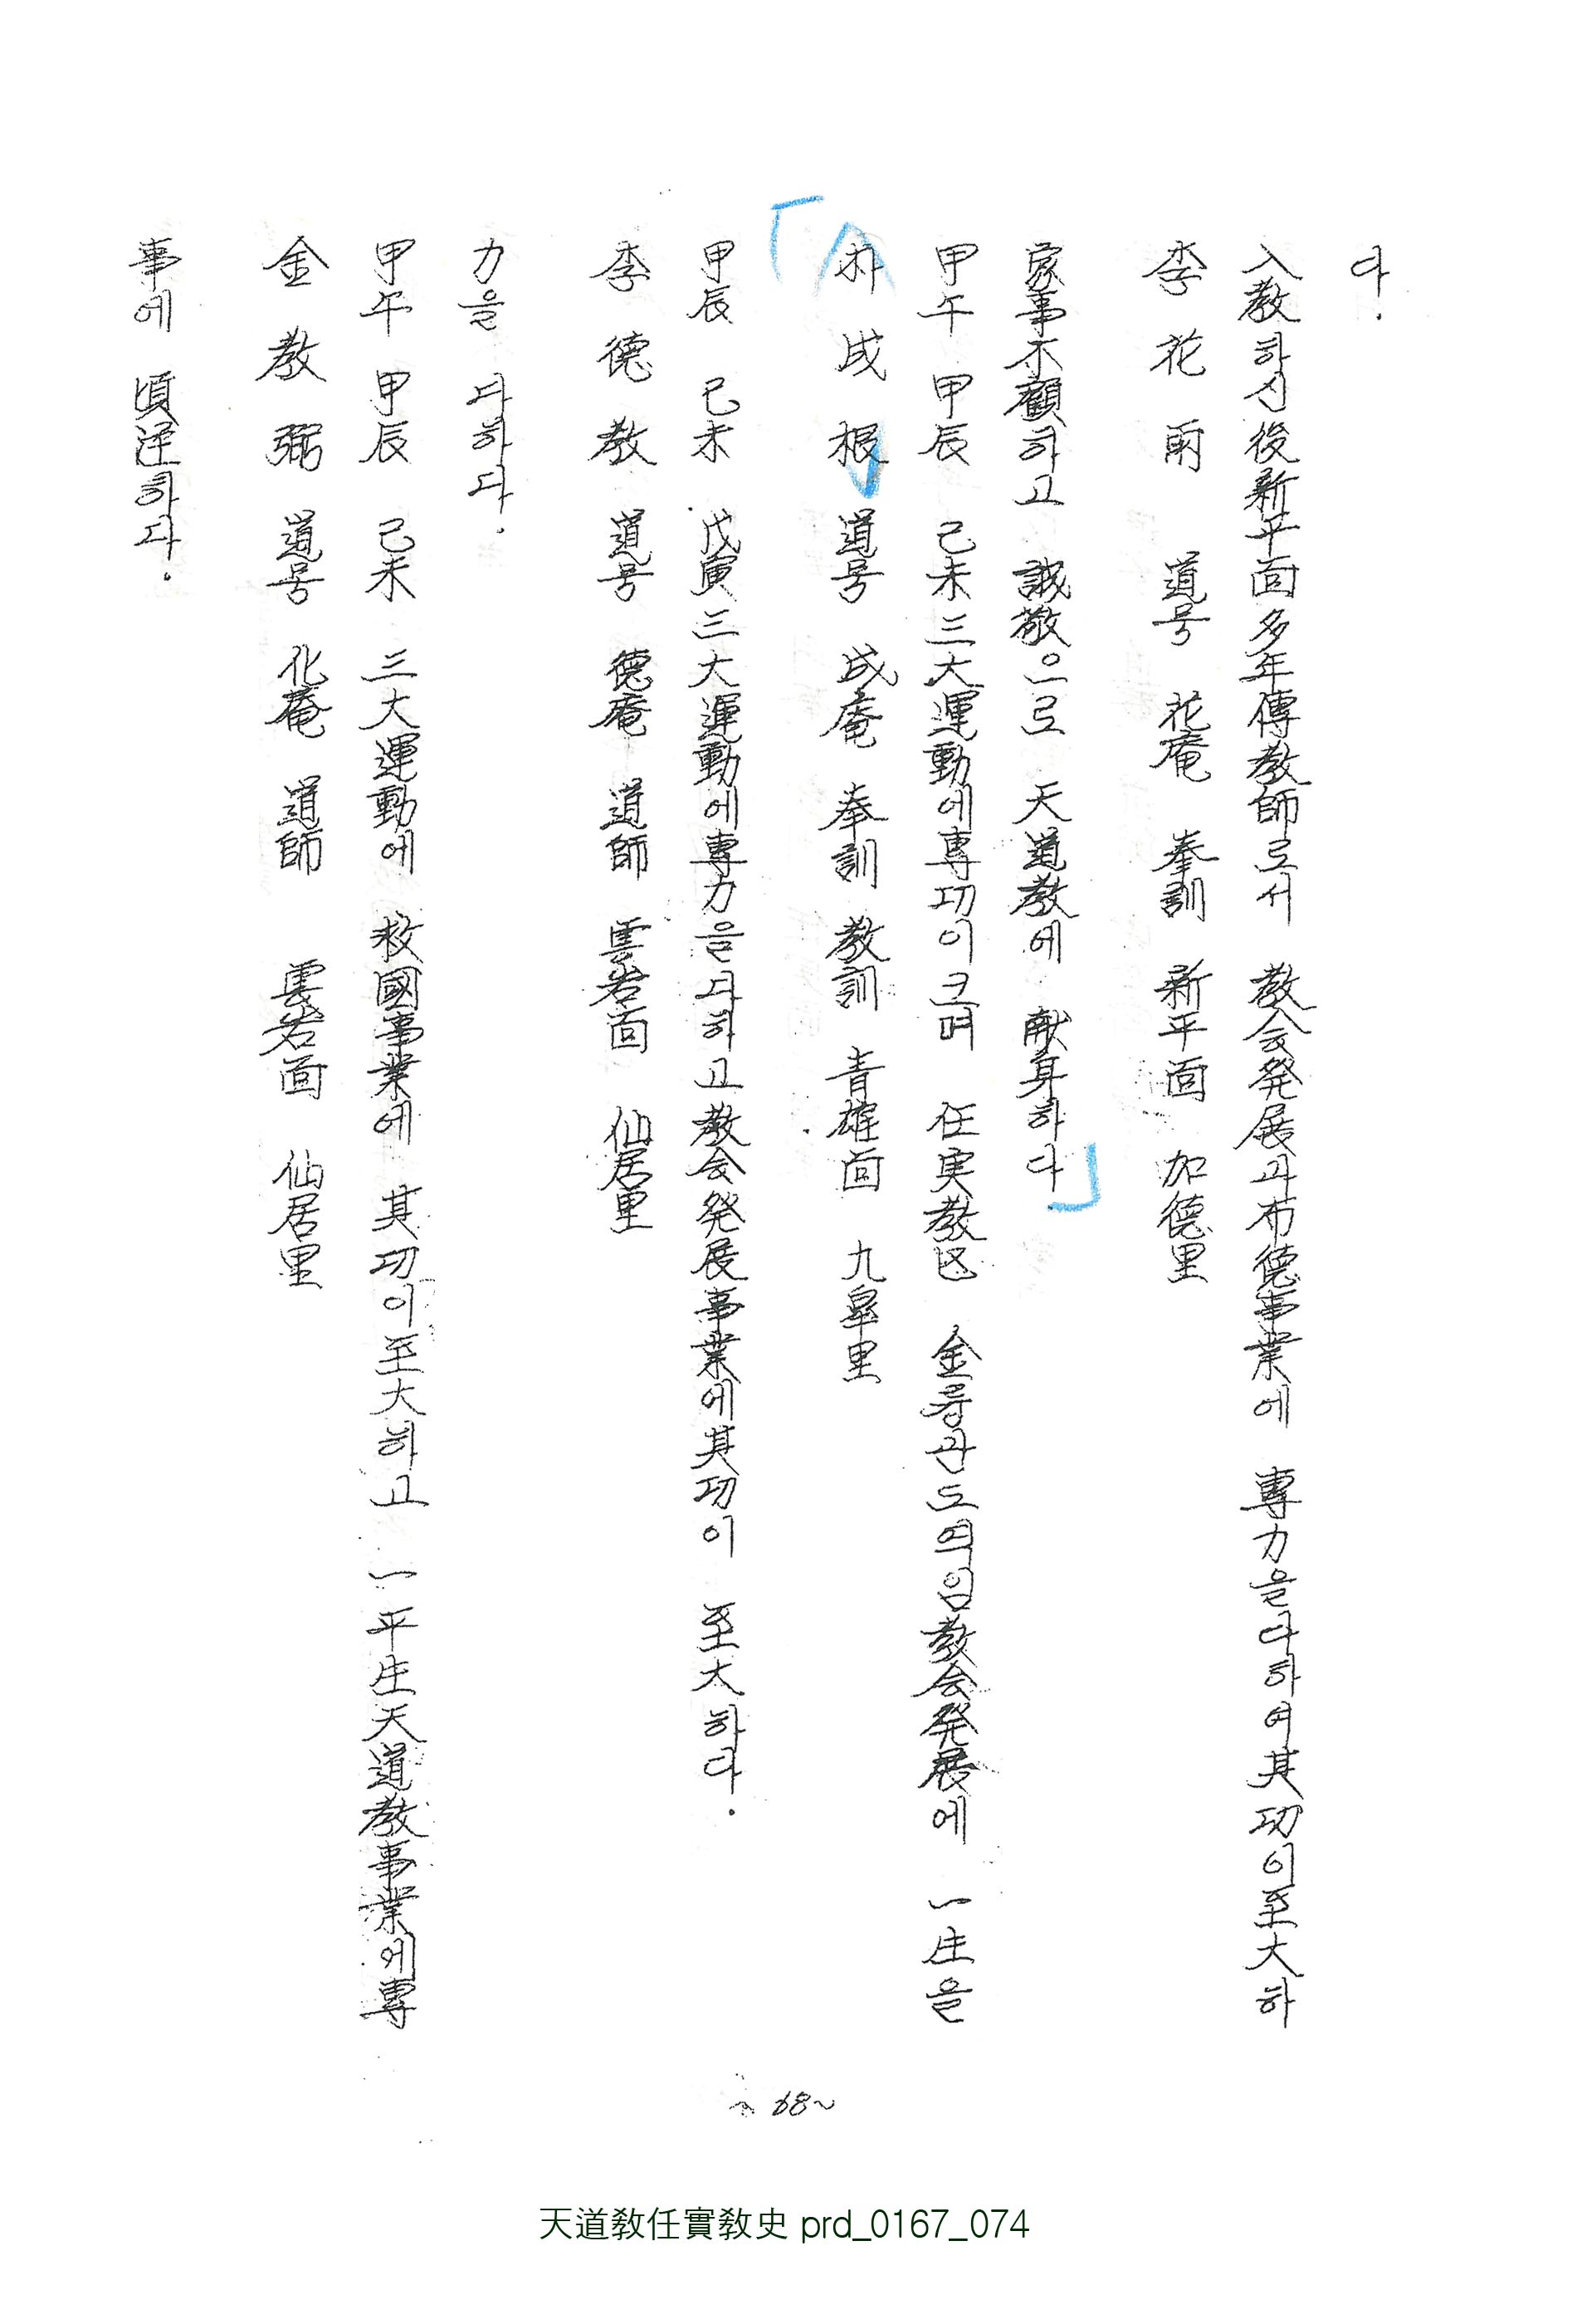 다.
入教하신後新平面多年傳教師로서 教会発展과布德事業에 專力을다하여其功이至大하
李花雨 道号 花庵 奉訓 新平面 加德里
家事不顧하고 誠敬으로 天道教에 献身하다
甲午 甲辰 己未三大運動에專功이크며 任実教区 金榮관도의인教会発展에 一生을
朴成根 道号 成庵 奉訓 教訓 青雄面 九皐里
甲辰 己未 戊寅三大運動에專力을다하고教会発展事業에其功이 至大하다.
李德教 道号 德庵 道師 雲岩面 仙居里
力을 다하다.
甲午 甲辰 己未 三大運動에 救國事業에 其功이至大하고 一平生天道教事業에專
金教弼 道号 化庵 道師 雲岩面 仙居里
事에 頃逆하다.
~68~
天道敎任實敎史 prd_0167_074